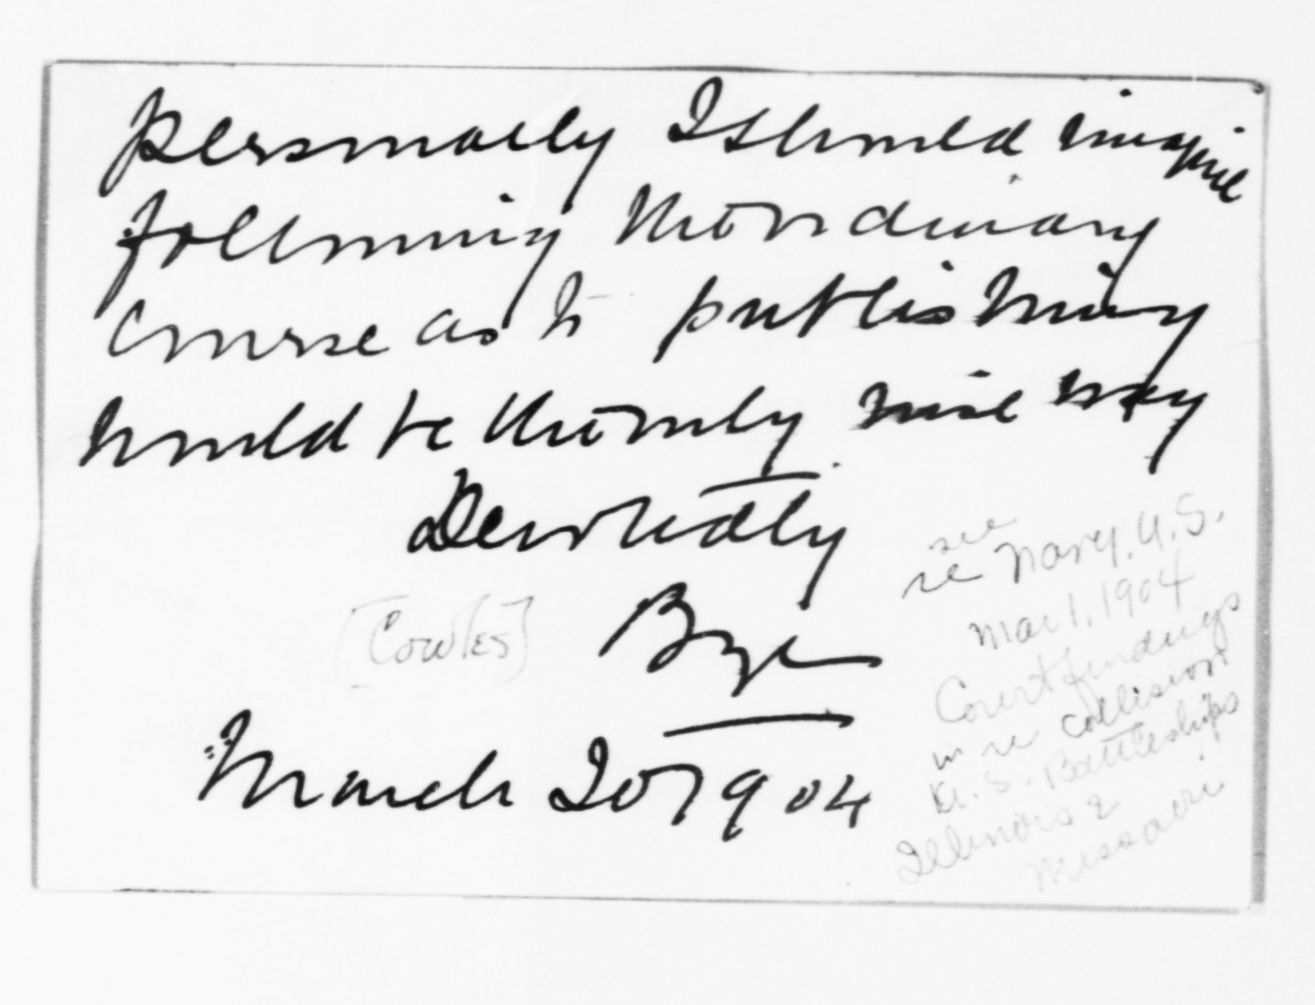 personally I should imagine
following the ordinary
course as to publishing
would be the only nice way
Devotedly
Bye
[Cowles]
March 20 1904
see
re Navy, U.S.
Mar 1, 1904
Court findings
in re collision
U.S. Battleships
Illinois &
Missouri